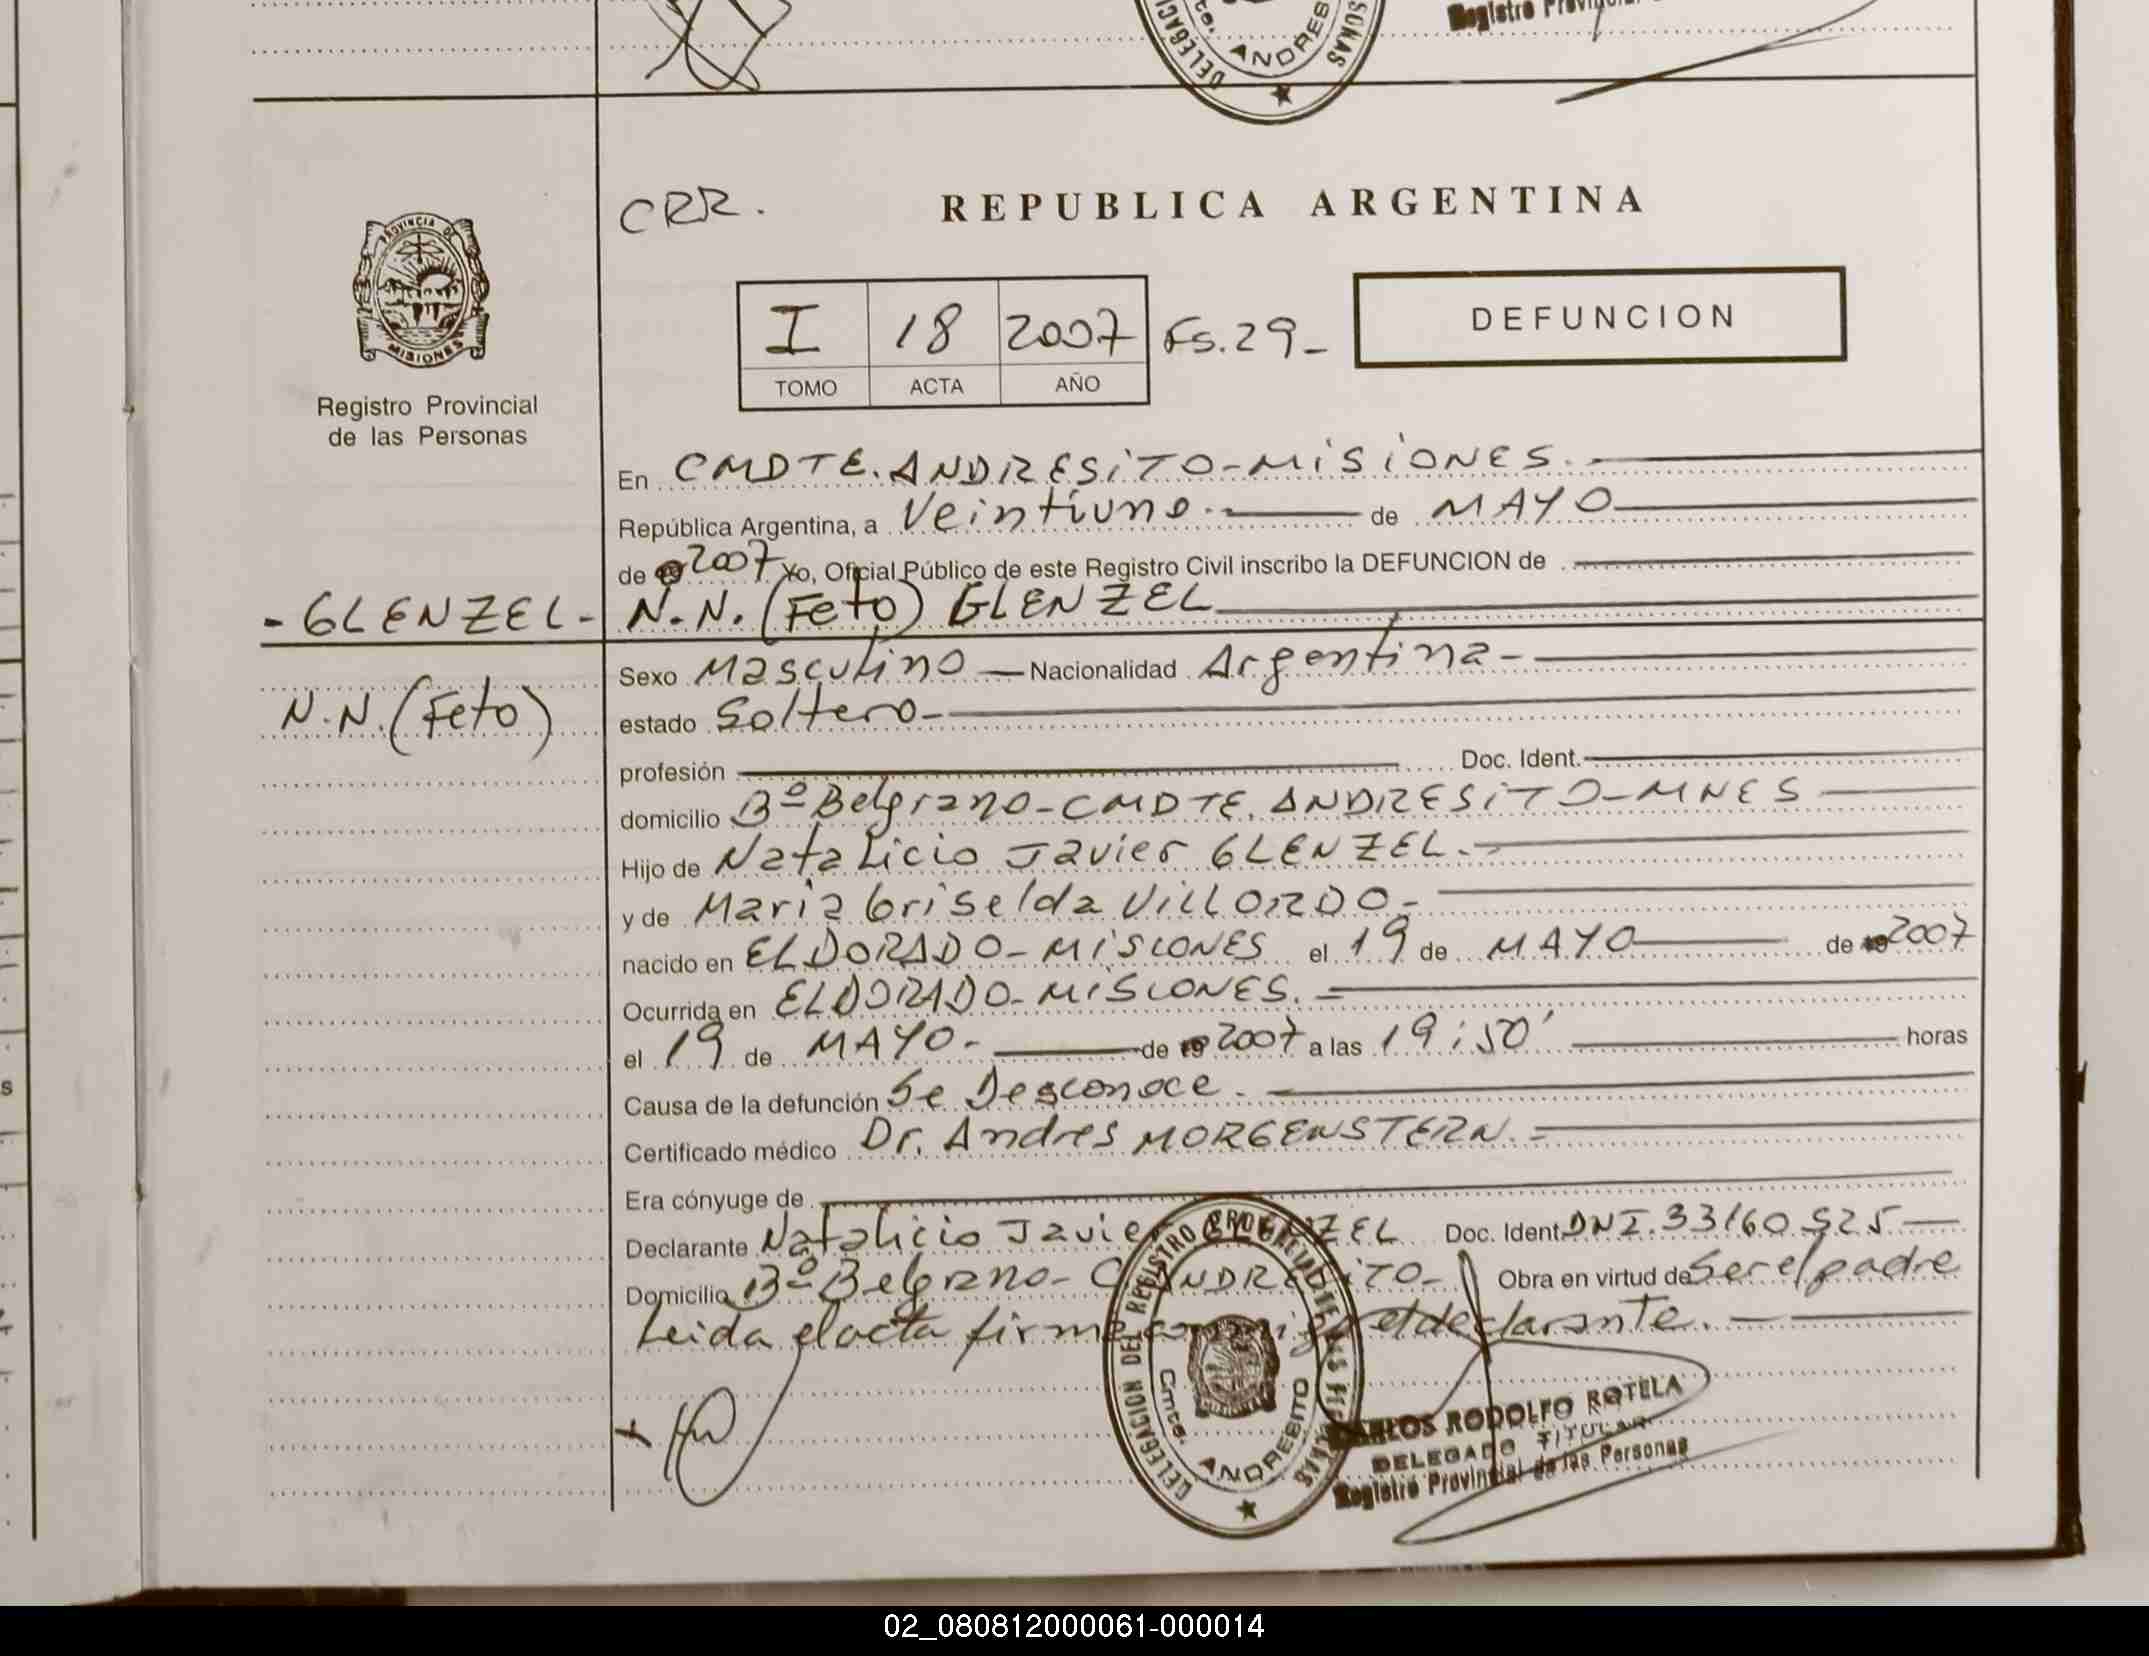 Registro Provincial
DELEGACI
SONAS
Cmte. ANDRES
PROVINCIA DE
MISIONES
Registro Provincial
de las Personas
CRR.
REPUBLICA ARGENTINA
I 18 2007 Fs.29-
TOMO ACTA AÑO
DEFUNCION
En CMDTE. ANDRESITO-MISIONES.
República Argentina, a Veintiuno. de MAYO
de 2007 Yo, Oficial Público de este Registro Civil inscribo la DEFUNCION de
- GLENZEL -
N.N. (Feto) GLENZEL
N.N. (Feto)
Sexo Masculino Nacionalidad Argentina-
estado Soltero-
profesión Doc. Ident.
domicilio Bº Belgrano-CMDTE. ANDRESITO-MNES
Hijo de Natalicio Javier GLENZEL.-
y de Maria Griselda VILLORDO-
nacido en ELDORADO-MISIONES el 19 de MAYO de 19 2007
Ocurrida en ELDORADO-MISIONES.
el 19 de MAYO.- de 19 2007 a las 19:50' horas
Causa de la defunción Se Desconoce.
Certificado médico Dr. Andres MORGENSTERN.-
Era cónyuge de
Declarante Natalicio Javier GLENZEL Doc. Ident. DNI.33160.525
Domicilio Bº Belgrano- C. ANDRESITO- Obra en virtud de Ser el padre
Leida el acta firma conmigo el declarante.
DELEGACION DEL REGISTRO PROVINCIAL DE LAS PERSONAS
Cmte. ANDRESITO
CARLOS RODOLFO ROTELA
DELEGADO TITULAR
Registro Provincial de las Personas
02_080812000061-000014